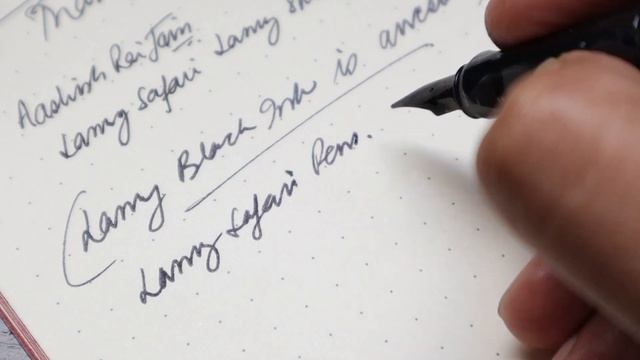 Aadhish Rai Jain
Lamy Safari Lamy
(Lamy Black Ink is
Lamy Safari Pens.